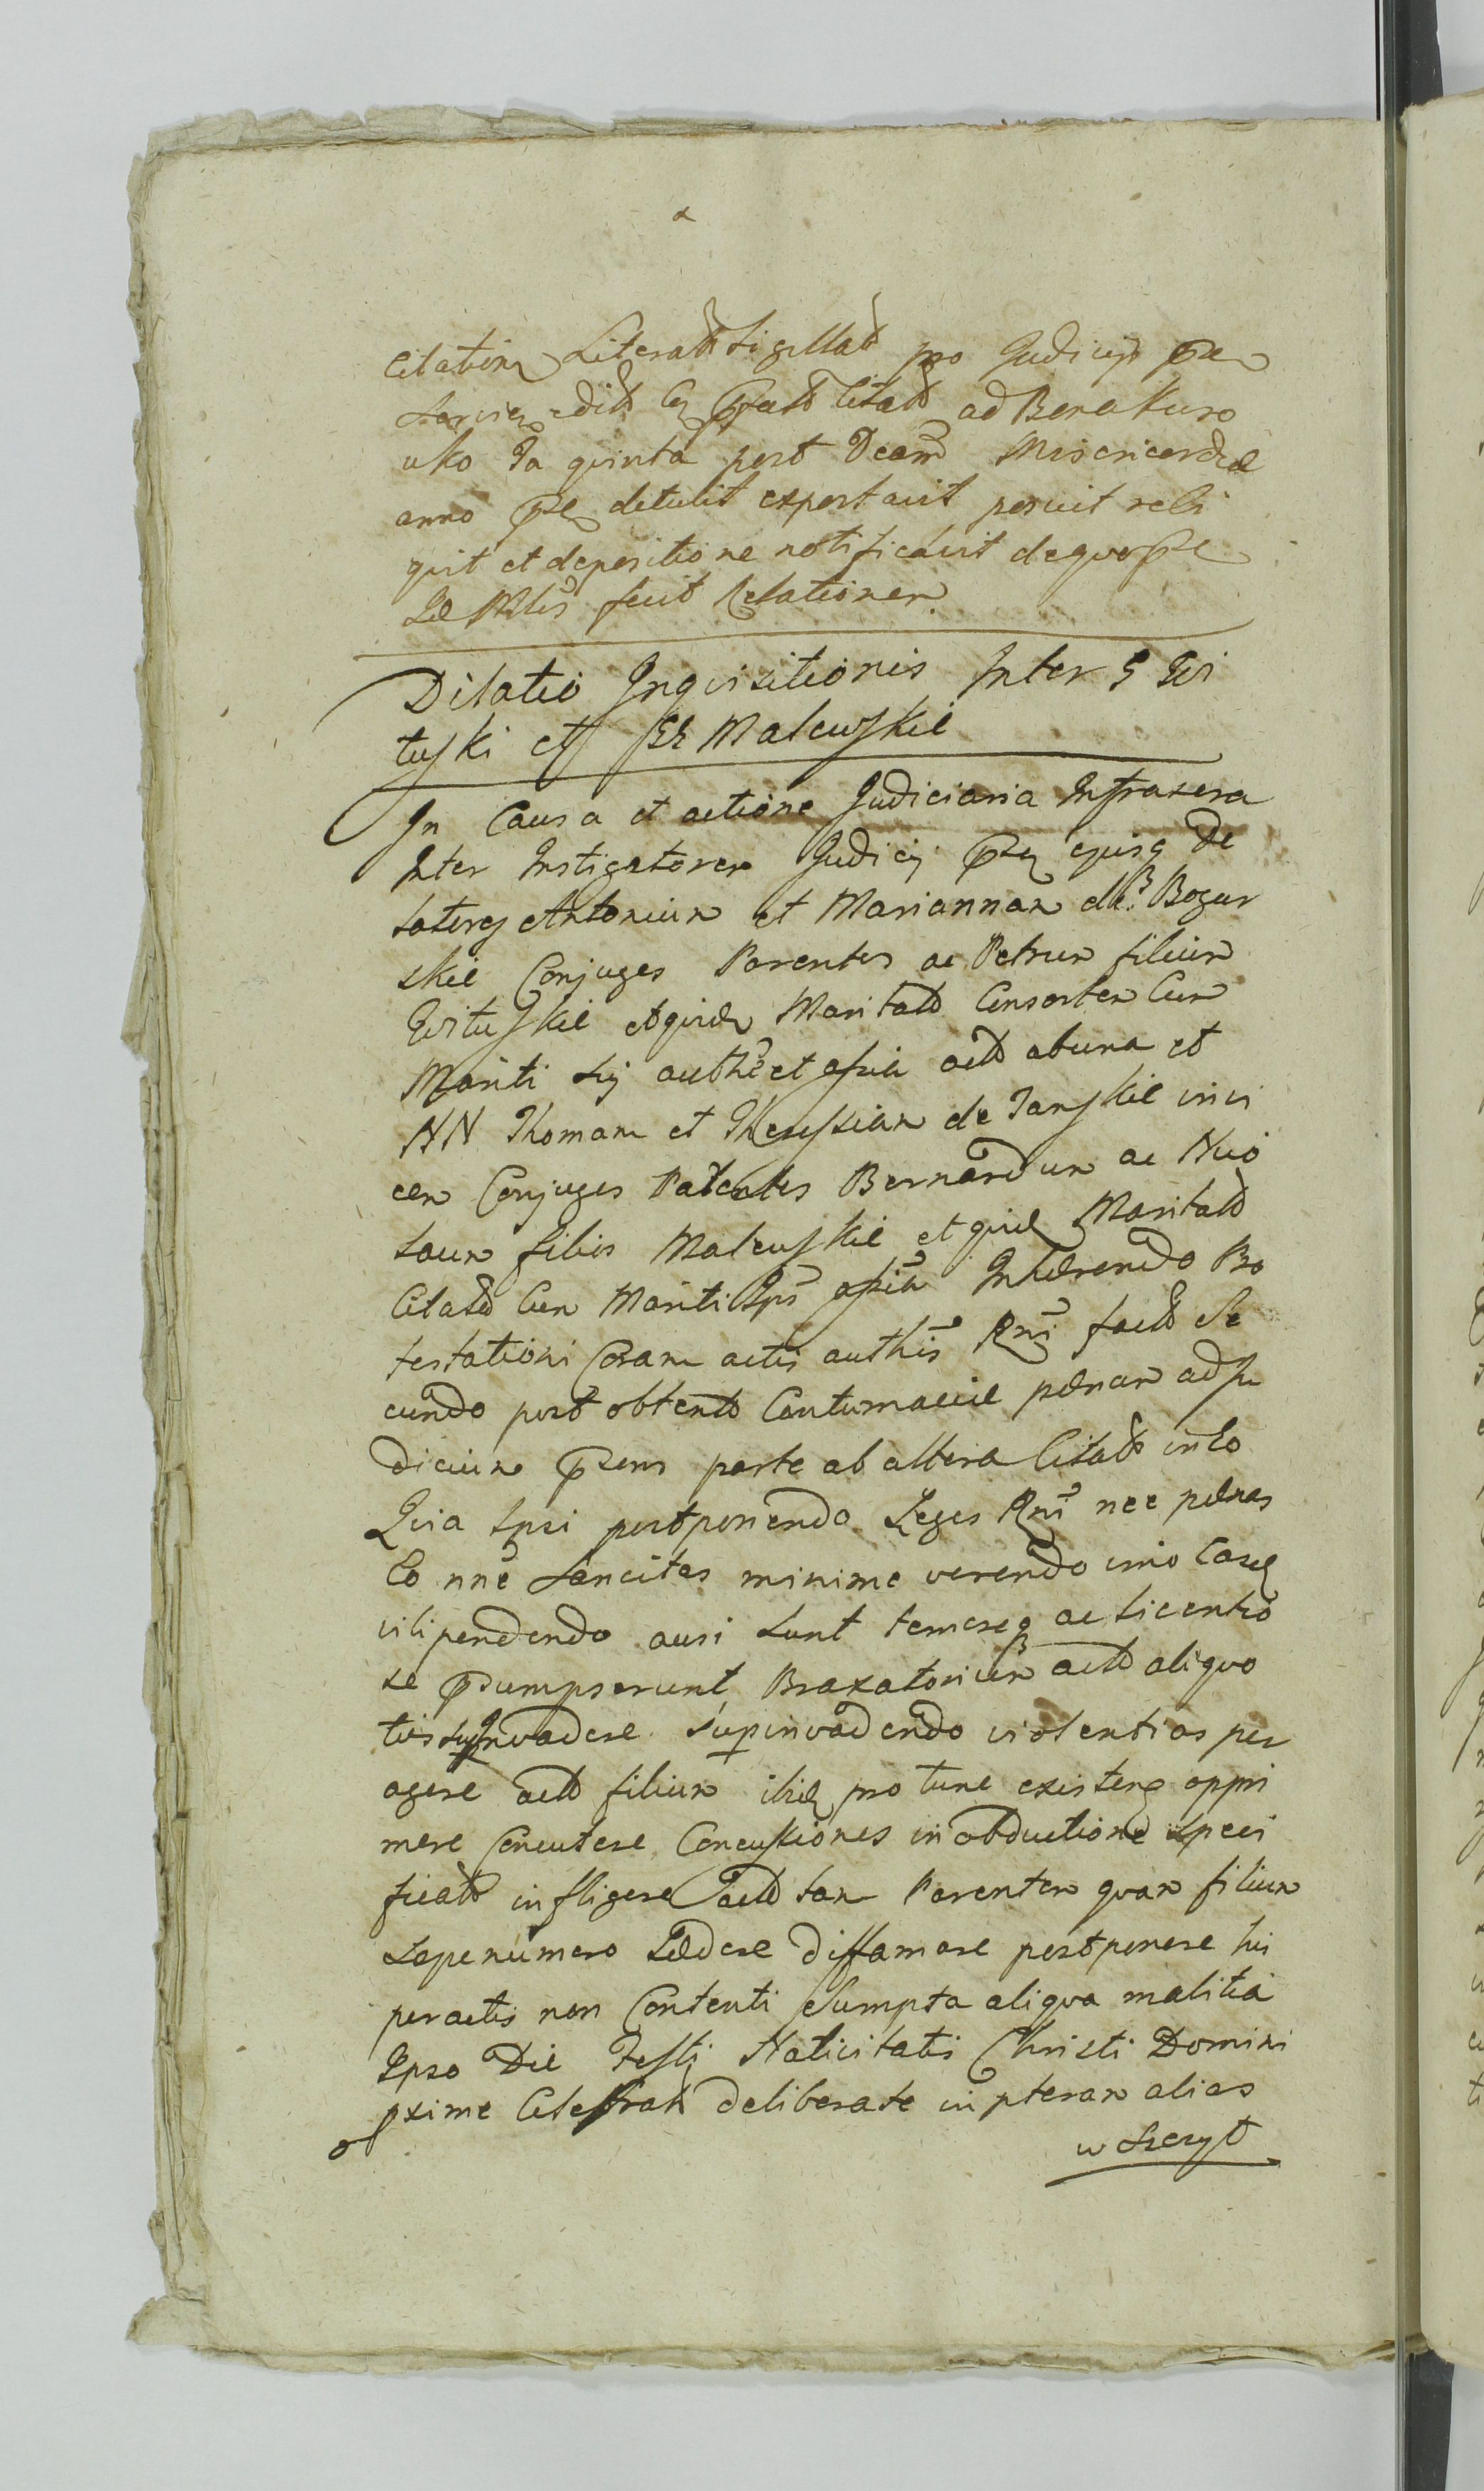 Citation Literat Sigillat pro Judicijs
edit ad Bona Kuro
wko Ia quinta post Dcam Misericordiæ
anno detulit exportavit posuit reli
quit et depositione notificavit dequo
fecit Relationem
Dilatio Inqvisitionis Inter G Wi
tuski et Malewskie
In Causa et actione Judiciaria Infrascra
Inter Instigatorem Judicij ejusq De
latores Antonium et Mariannam Bogur
skie Conjuges Parentes ac Petrum filium
Wituskie Maritat Consortem Cum
Mariti sui et act abuna et
NN Thomam et Theressiam de Janskie invi
cem Conjuges Parentes Bernardum ac
filios Malewskie et Maritat
Citatos Cum Mariti Inhærendo Pro
testationi Coram actis authis Rni fact Se
cundo post obtent Contumaciæ pænam ad Ju
dicium psens parte ab altera Citat in Eo
Quia Ipsi postponendo Leges Rni nec pænas
Eo nne Sancitas minime verendo imo Easq
vilipendendo ausi sunt temereq ac licentio
se psumpserunt Braxatorium act aliquo
ties Invadere supinvadendo violentias per
agere act filium pro tunc existen oppri
mere Concutere Concussiones in obductione speci
ficat infligere act tam Parentem quam filium
sæpenumero Lædere diffamare postponere his
peractis non Contenti assumpta aliqva malitia
Ipso Die Festi Nativitatis Christi Domini
pxime Celebrat deliberate in pteram alias
w